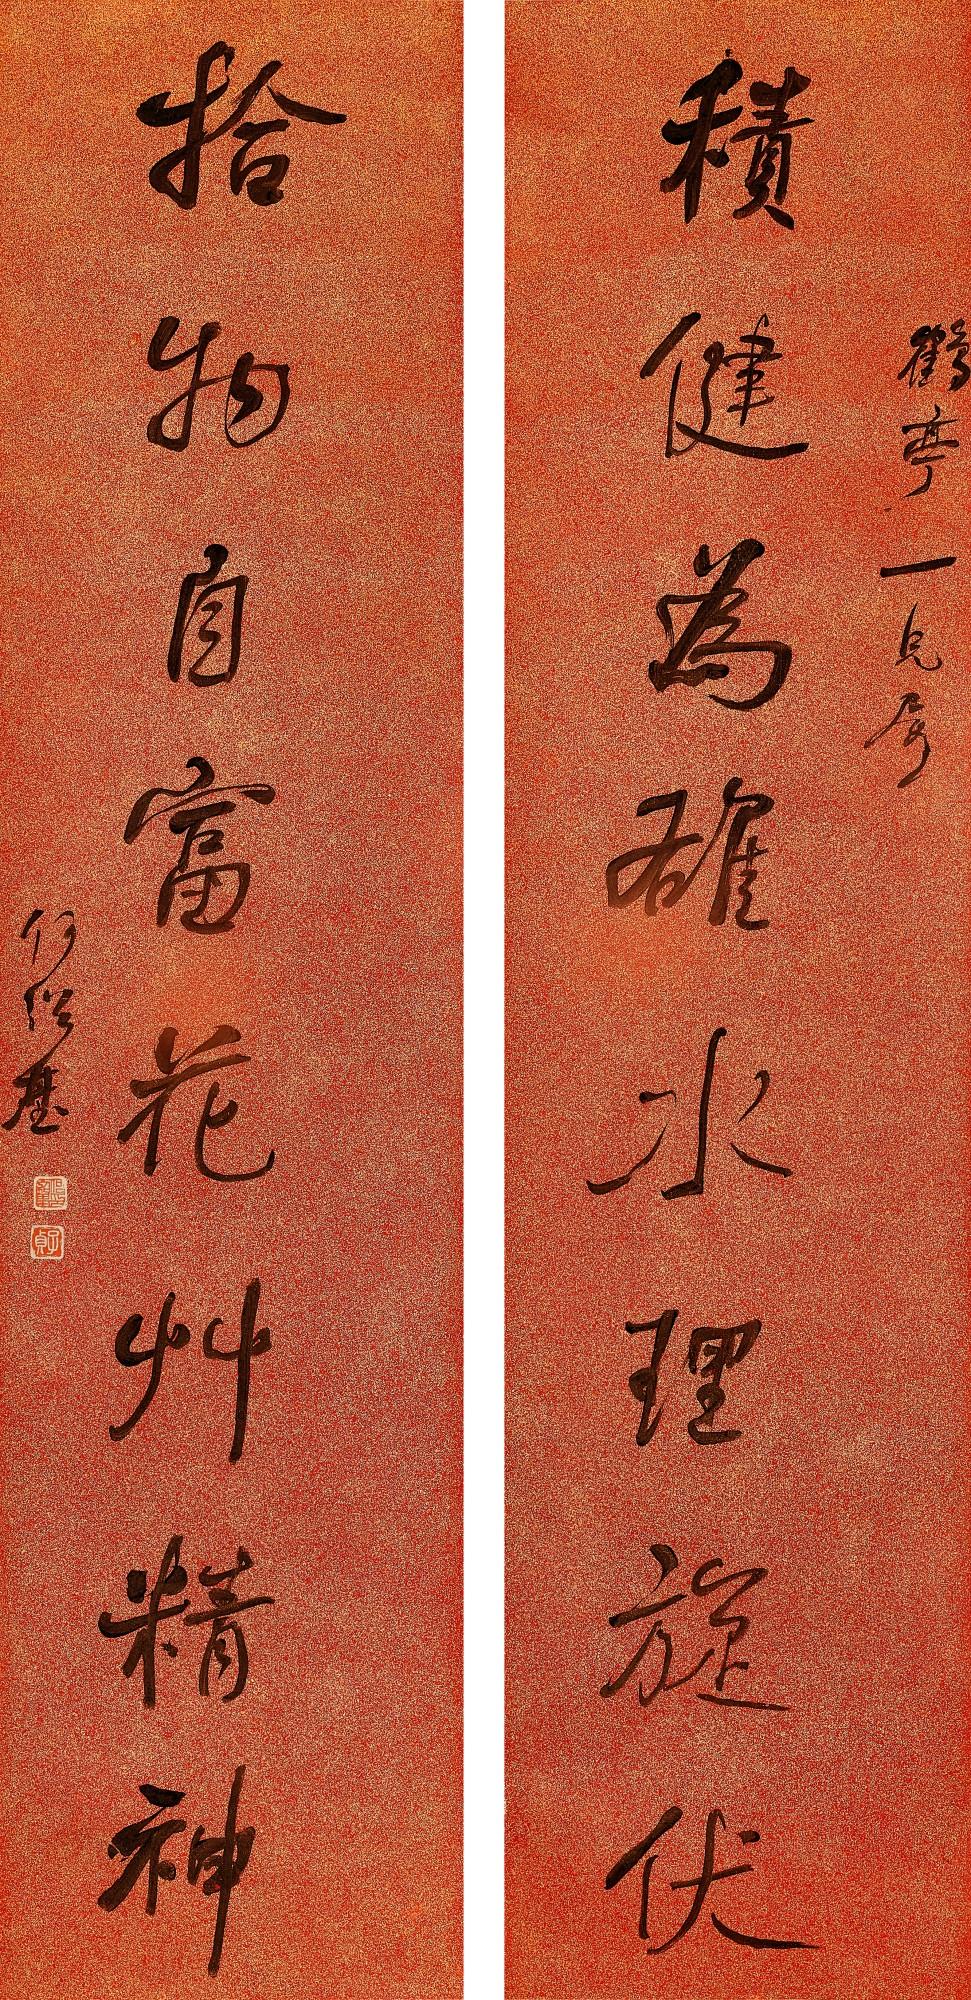 鶴亭一兄屬
積健為雄水理旋伏
拾物自富花艸精神
何紹基
子貞